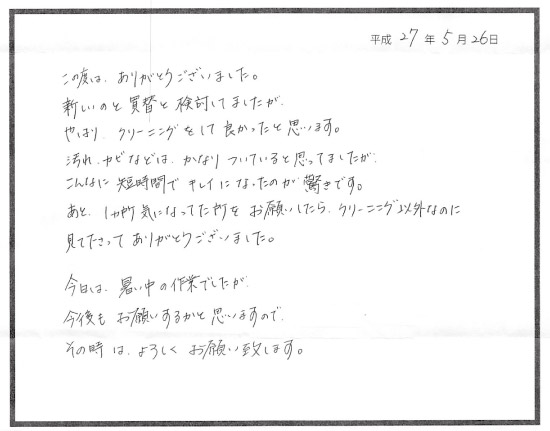 平成 27 年 5 月 26 日
この度は、ありがとうございました。
新しいのと買替と検討してましたが、
やはり、クリーニングをして良かったと思います。
汚れ、カビなどは、かなりついていると思ってましたが、
こんなに短時間でキレイになったのが驚きです。
あと、1カ所気になってた所をお願いしたら、クリーニング以外なのに
見てたさってありがとうございました。
今日は、暑い中の作業でしたが
今後もお願いするかと思いますので、
その時は、よろしくお願い致します。